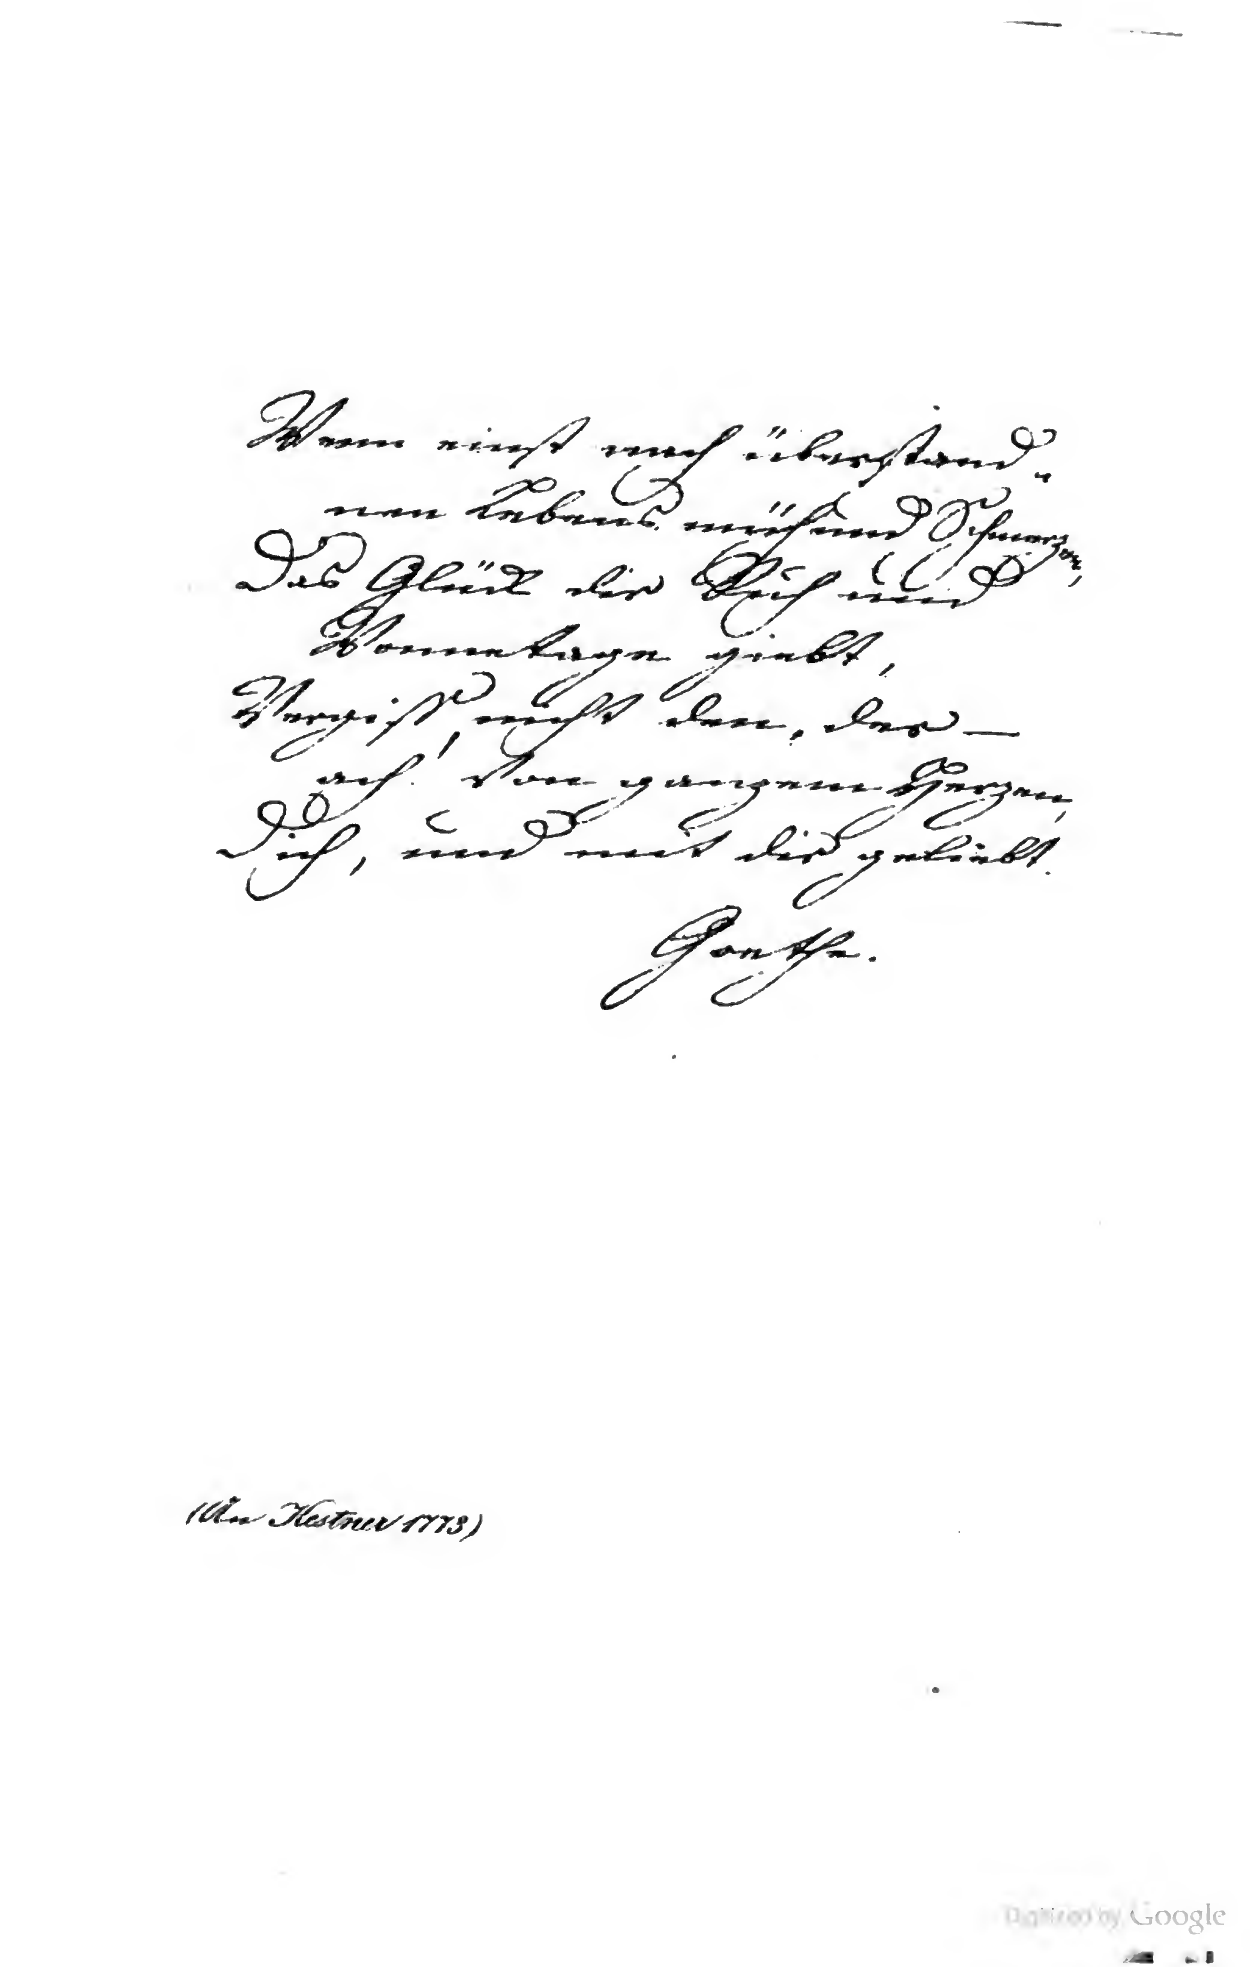 Wenn einst nach überstand-
nen Lebens müh und Schmerzen,
Das Glück dir Ruh und
Wonnetage giebt,
Vergiß nicht den, der —
ach! von ganzem Herzen,
Dich, und mit dir geliebt.
Goethe.
(An Kestner 1773)
Digitized by Google